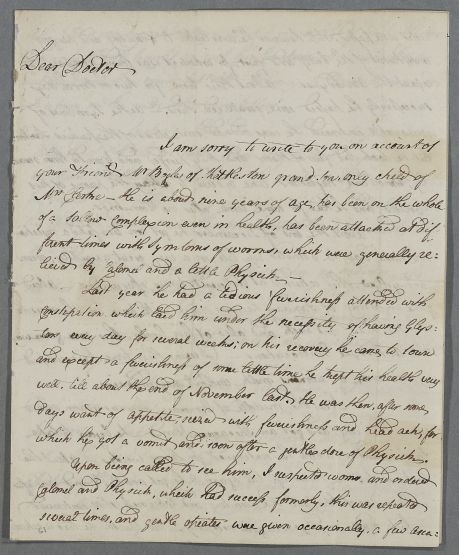 Dear Doctor
I am sorry to write to you on account of
your Friend Mr Boyle of grand son, only child of
Mrs He is about nine years of age, has been on the whole
of a Salow Complexion even in health, has been attacked at dif
ferent times with Symtoms of worms, which were generally re=
lieved by Calomel and a little Physick —
Last year he had a tedious feverishness attended with
Constipation which laid him under the necessity of having Glys=
ters every day for several weeks; on his recovery he came to town
and except a feverishness of some little time he kept his health very
well till about the end of November last. He was then, after some
days want of appetite, seized with feverishness and head ach, for
which he got a vomit and soon after a gentle dose of Physick.
Upon being called to see him, I suspected worms and ordered
Calomel and Physick, which had success formerly, this was repeated
several times, and gentle opiates were given occasionally. a few asca=